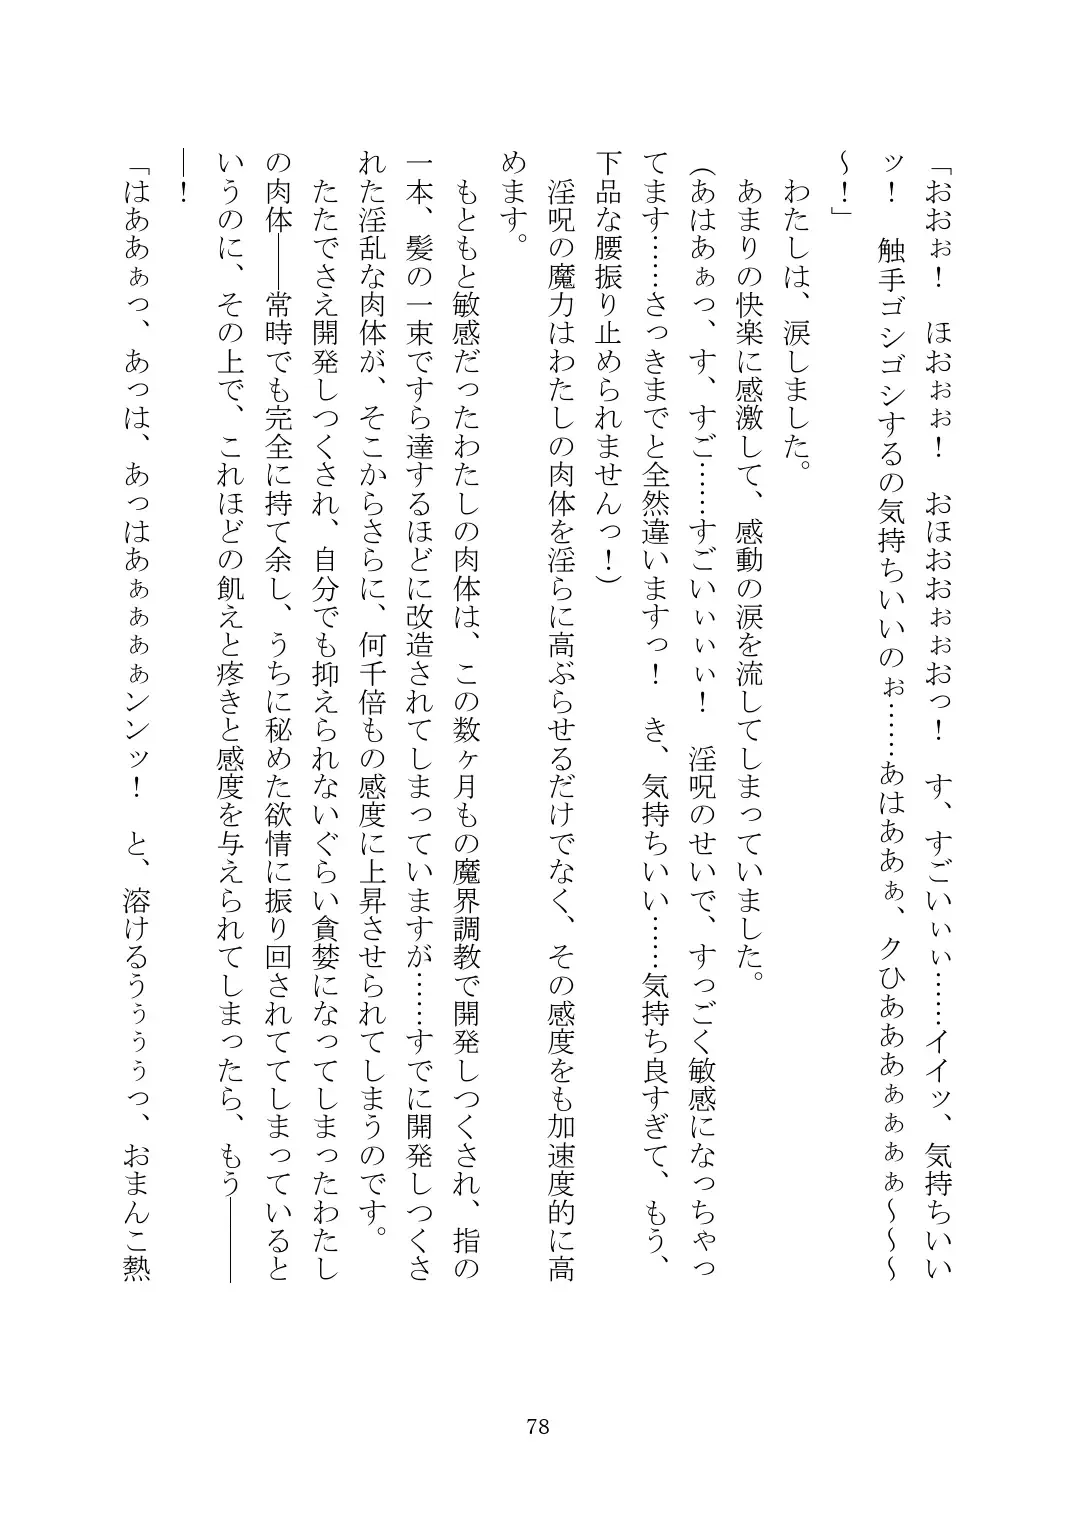 「おおぉ！　ほおぉぉ！　おほおおぉぉおっ！　す、すごいぃぃ……イイッ、気持ちいい
ッ！　触手ゴシゴシするの気持ちいいのぉ……あはああぁ、クひあああぁぁぁぁ～～～
～！」
　わたしは、涙しました。
　あまりの快楽に感激して、感動の涙を流してしまっていました。
（あはあぁっ、す、すご……すごいぃぃぃ！　淫呪のせいで、すっごく敏感になっちゃっ
てます……さっきまでと全然違いますっ！　き、気持ちいい……気持ち良すぎて、もう、
下品な腰振り止められませんっ！）
　淫呪の魔力はわたしの肉体を淫らに高ぶらせるだけでなく、その感度をも加速度的に高
めます。
　もともと敏感だったわたしの肉体は、この数ヶ月もの魔界調教で開発しつくされ、指の
一本、髪の一束ですら達するほどに改造されてしまっていますが……すでに開発しつくさ
れた淫乱な肉体が、そこからさらに、何千倍もの感度に上昇させられてしまうのです。
　たたでさえ開発しつくされ、自分でも抑えられないぐらい貪婪になってしまったわたし
の肉体――常時でも完全に持て余し、うちに秘めた欲情に振り回されててしまっていると
いうのに、その上で、これほどの飢えと疼きと感度を与えられてしまったら、もう――
―！
「はああぁっ、あっは、あっはあぁぁぁぁンンッ！　と、溶けるうぅぅぅっ、おまんこ熱
78